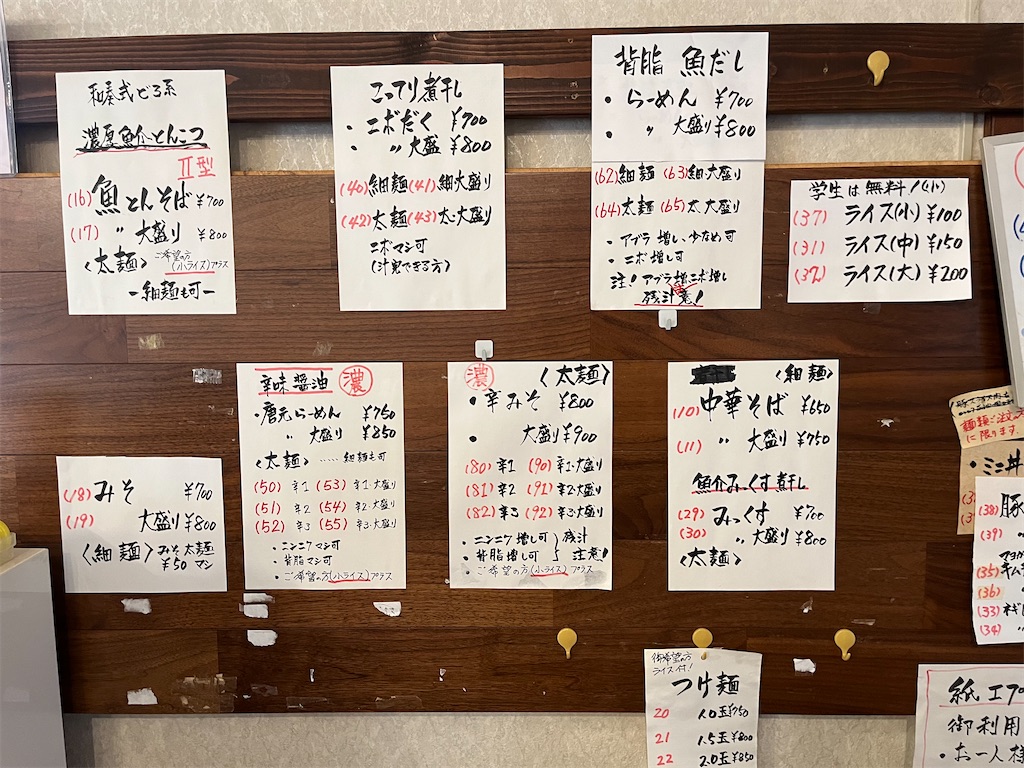 和奏式どろ系
濃厚魚介とんこつ
Ⅱ型
(16) 魚とんそば ¥700
(17) 〃 大盛り ¥800
〈太麺〉ご希望の方(小ライス)プラス
-細麺も可-
こってり煮干し
・ニボだく ¥700
・〃 大盛 ¥800
(40)細麺(41)細大盛り
(42)太麺(43)太大盛り
ニボマシ可
(汁完できる方)
背脂 魚だし
・らーめん ¥700
・〃 大盛り ¥800
(62)細麺 (63)細大盛り
(64)太麺 (65)太大盛り
・アブラ増し、少なめ可
・ニボ増し可
注!アブラ増、ニボ増し
残汁意!
学生は無料!(小)
(37) ライス(小) ¥100
(31) ライス(中) ¥150
(32) ライス(大) ¥200
(18) みそ ¥700
(19) 大盛り ¥800
〈細麺〉みそ太麺
¥50マシ
辛味醤油 濃
・唐元らーめん ¥750
〃 大盛り ¥850
〈太麺〉‥‥‥細麺も可
(50) 辛1 (53) 辛1・大盛り
(51) 辛2 (54) 辛2・大盛り
(52) 辛3 (55) 辛3・大盛り
・ニンニクマシ可
・背脂マシ可
・ご希望の方(小ライス)プラス
濃 〈太麺〉
・辛みそ ¥800
・ 大盛り ¥900
(80) 辛1 (90) 辛1・大盛り
(81) 辛2 (91) 辛2・大盛り
(82) 辛3 (92) 辛3・大盛り
・ニンニク増し可 残汁
・背脂増し可 注意!
・ご希望の方(小ライス)プラス
〈細麺〉
(10) 中華そば ¥650
(11) 〃 大盛り ¥750
魚介みっくす煮干し
(29) みっくす ¥700
(30) 〃 大盛り ¥800
〈太麺〉
麺類ご注文の方
に限ります。
・ミニ丼
(38) 豚
(39) 〃
マヨ
(35) キムチ
(36)
(33)
(34) 〃
御希望の方
ライス付!
つけ麺
20 1.0玉 ¥750
21 1.5玉 ¥800
22 2.0玉 ¥850
紙エプ
御利用
・お一人様